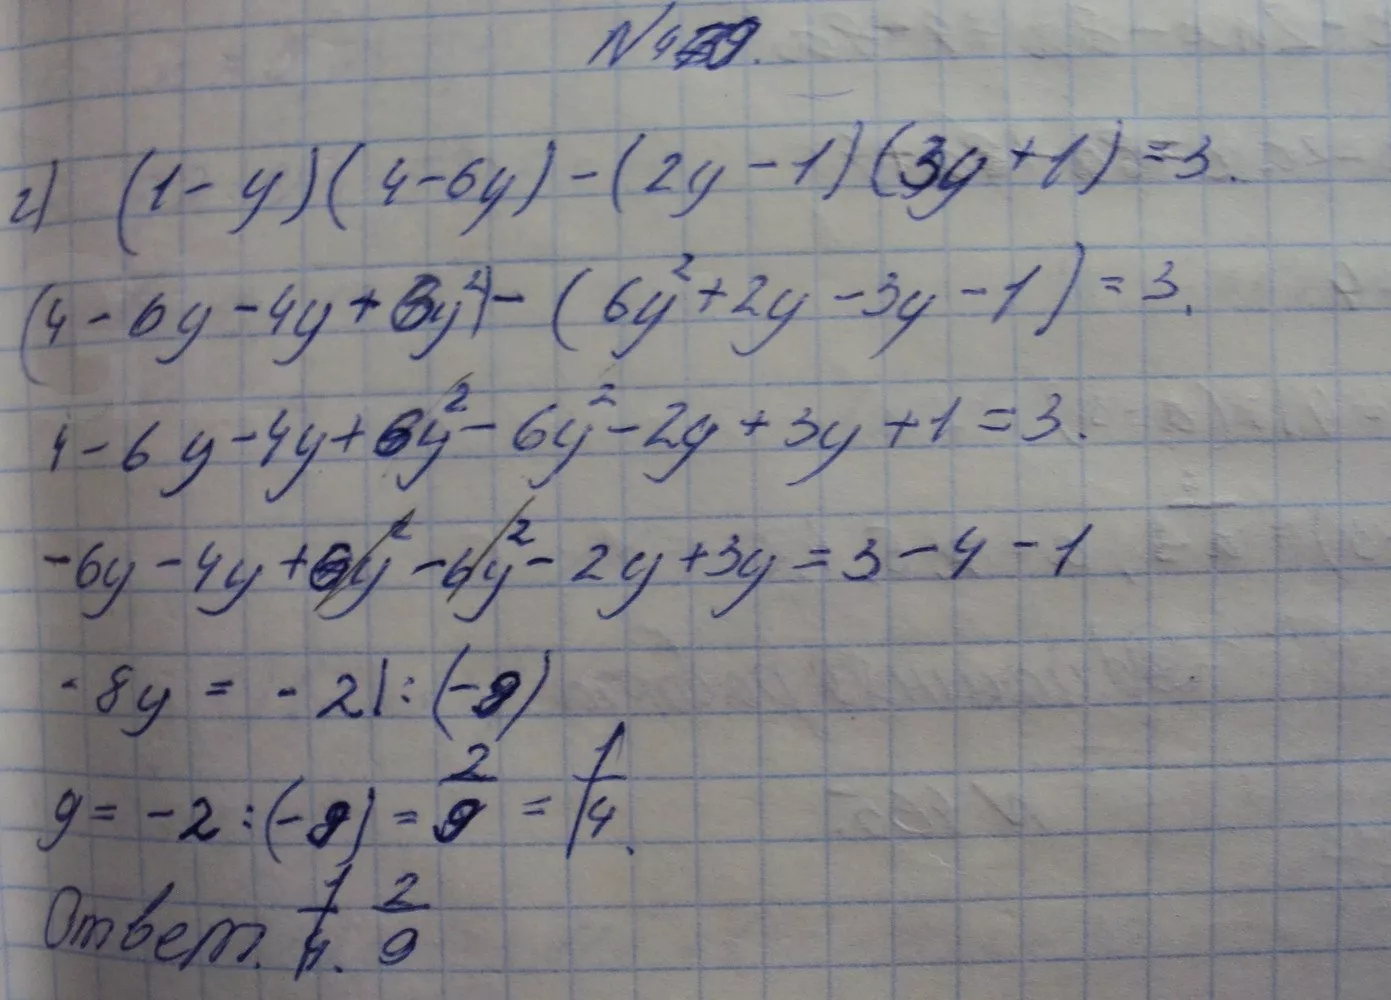 г) (1-y)(4-6y)-(2y-1)(3y+1)=3.
(4-6y-4y+6y²)-(6y²+2y-3y-1)=3.
4-6y-4y+6y²-6y²-2y+3y+1=3.
-6y-4y+6y²-6y²-2y+3y=3-4-1
-8y = -2|:(-9)
y= -2:(-9)= 2/9 = 1/4.
Ответ. 1/4. 2/9